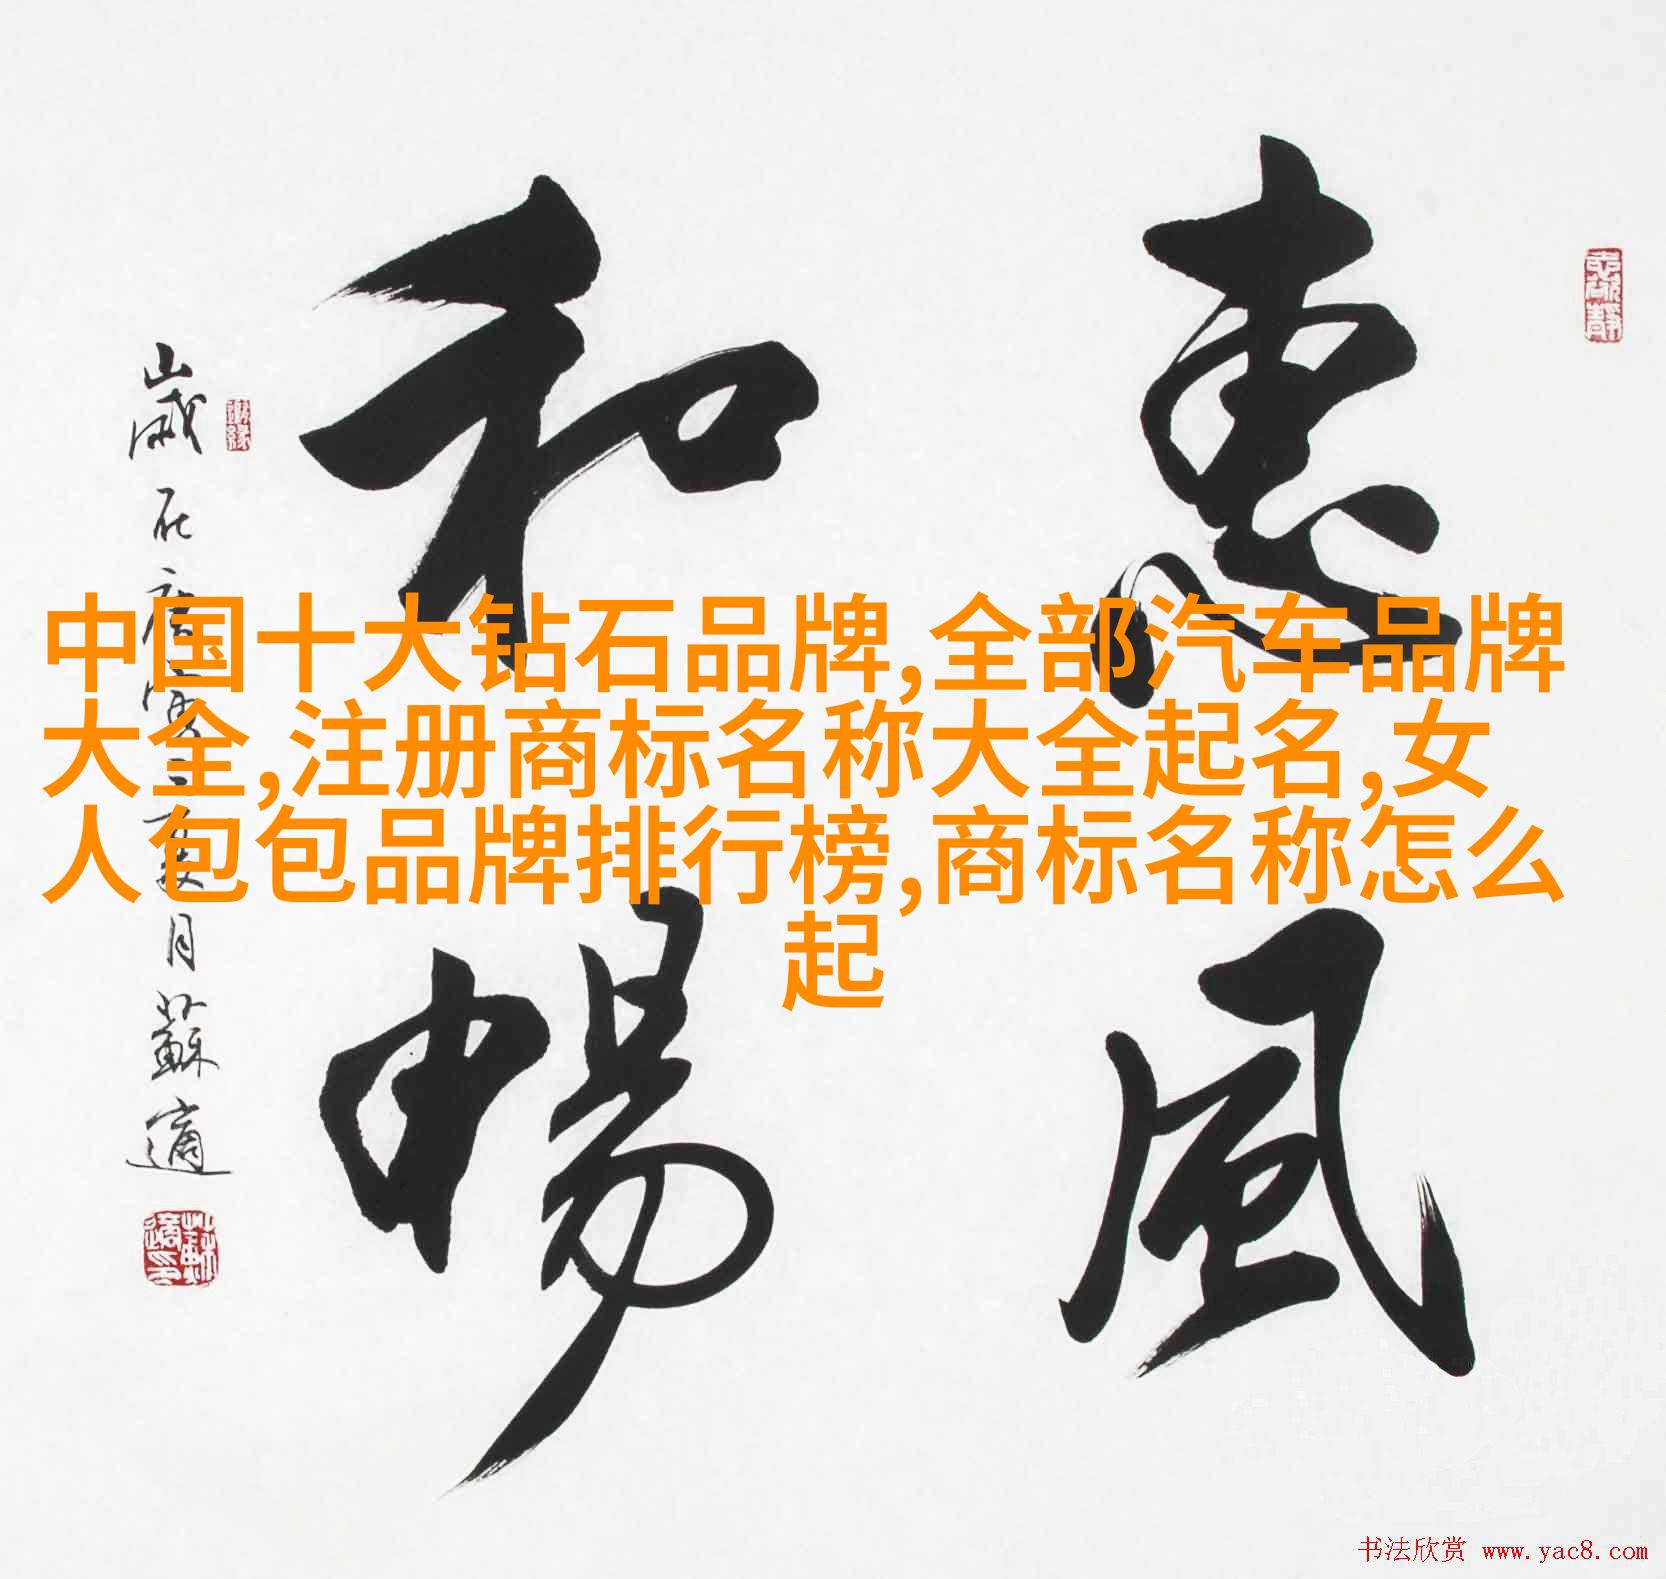 惠風
和暢
歲在
月蘇適
中国十大钻石品牌,全部汽车品牌
大全,注册商标名称大全起名,女
人包包品牌排行榜,商标名称怎么
起
书法欣赏 www.yac8.com